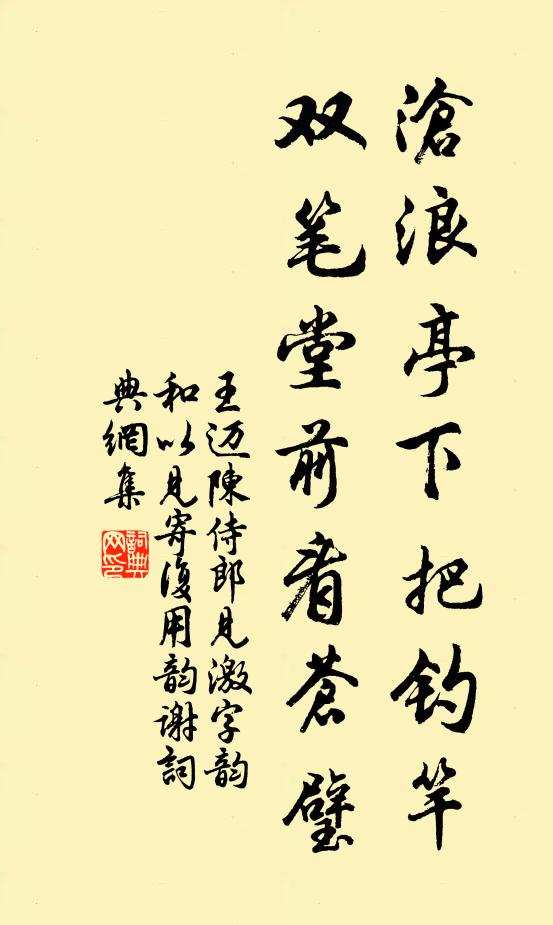 滄浪亭下把釣竿
双笔堂前看苍璧
王迈陳侍郎見激字韵
和以見寄復用韵谢詞
典網集
詞典网印